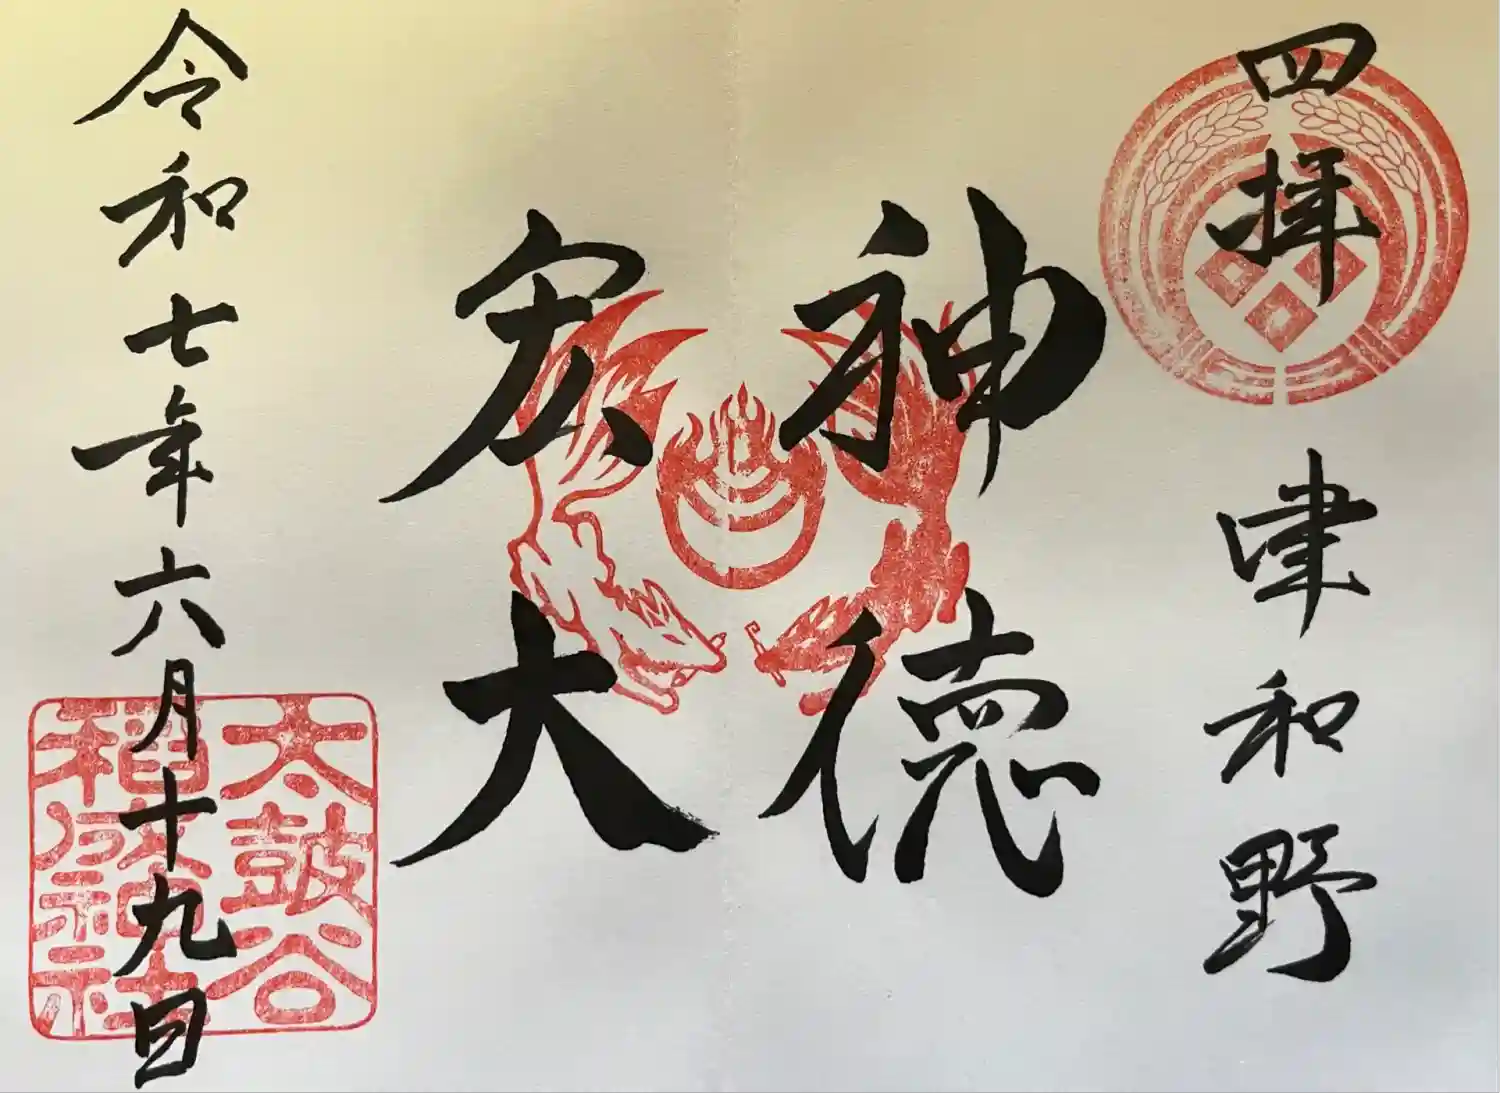 四拝
津和野
神徳
宏大
令和七年六月十九日
太皷谷
稲成神社